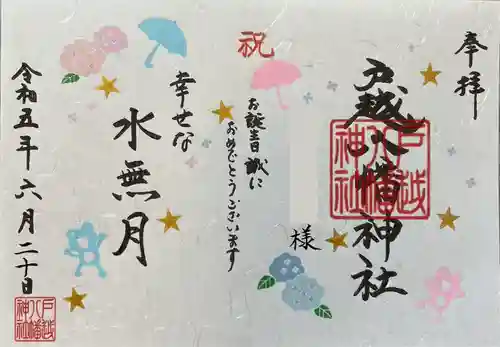 奉拝
戸越八幡神社
戸越八幡神社
様
祝
お誕生日誠に
おめでとうございます
幸せな
水無月
令和五年六月二十日
戸越八幡神社